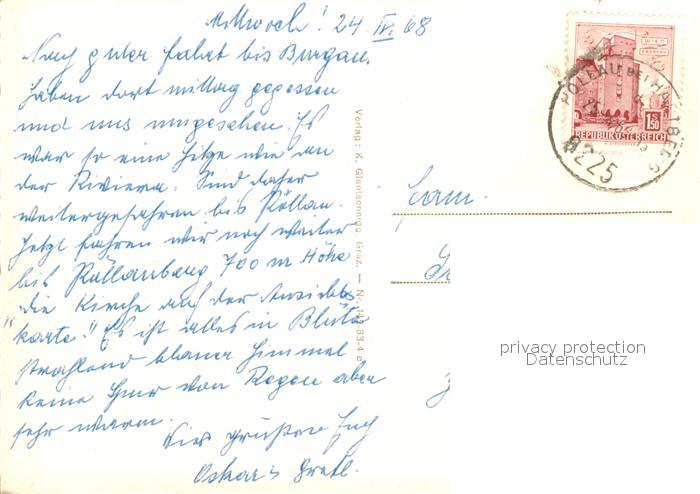 Mittwoch! 24 IV. 68
Nach guter Fahrt bis Burgau.
haben dort mittag gegessen
und uns umgesehen. Es
war so eine Hitze wie an
der Riviera. Sind daher
weitergefahren bis Pöllau.
Jetzt fahren wir noch weiter
bis Pöllauberg 700 m Höhe
"die Kirche auf der Ansichts
karte." Es ist alles in Blüte
strahlend blauer Himmel
keine Spur von Regen aber
sehr warm.
Wir grüßen Euch
Oskar & Gretl.
Verlag: K. Glantschnigg, Graz. — Nr.
WIEN
1S50
REPUBLIK ÖSTERREICH
PÖLLAU BEI HARTBERG
8225
Fam.
privacy protection
Datenschutz